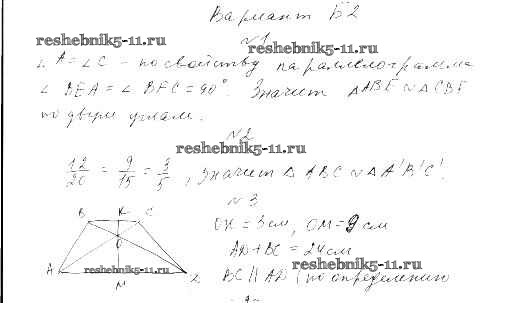 Вариант Б2
№1
reshebnik5-11.ru
∠A = ∠C - по свойству параллелограмма
∠BEA = ∠BFC = 90°. Значит △ABE ∾ △CBF
по двум углам.
№2
reshebnik5-11.ru
12/20 = 9/15 = 3/5, значит △ABC ∾ △A'B'C'.
№3
B K C
OK = 3см, OM = 9см
O
AD + BC = 24см
reshebnik5-11.ru
A reshebnik5-11.ru D
BC || AD (по определению
M